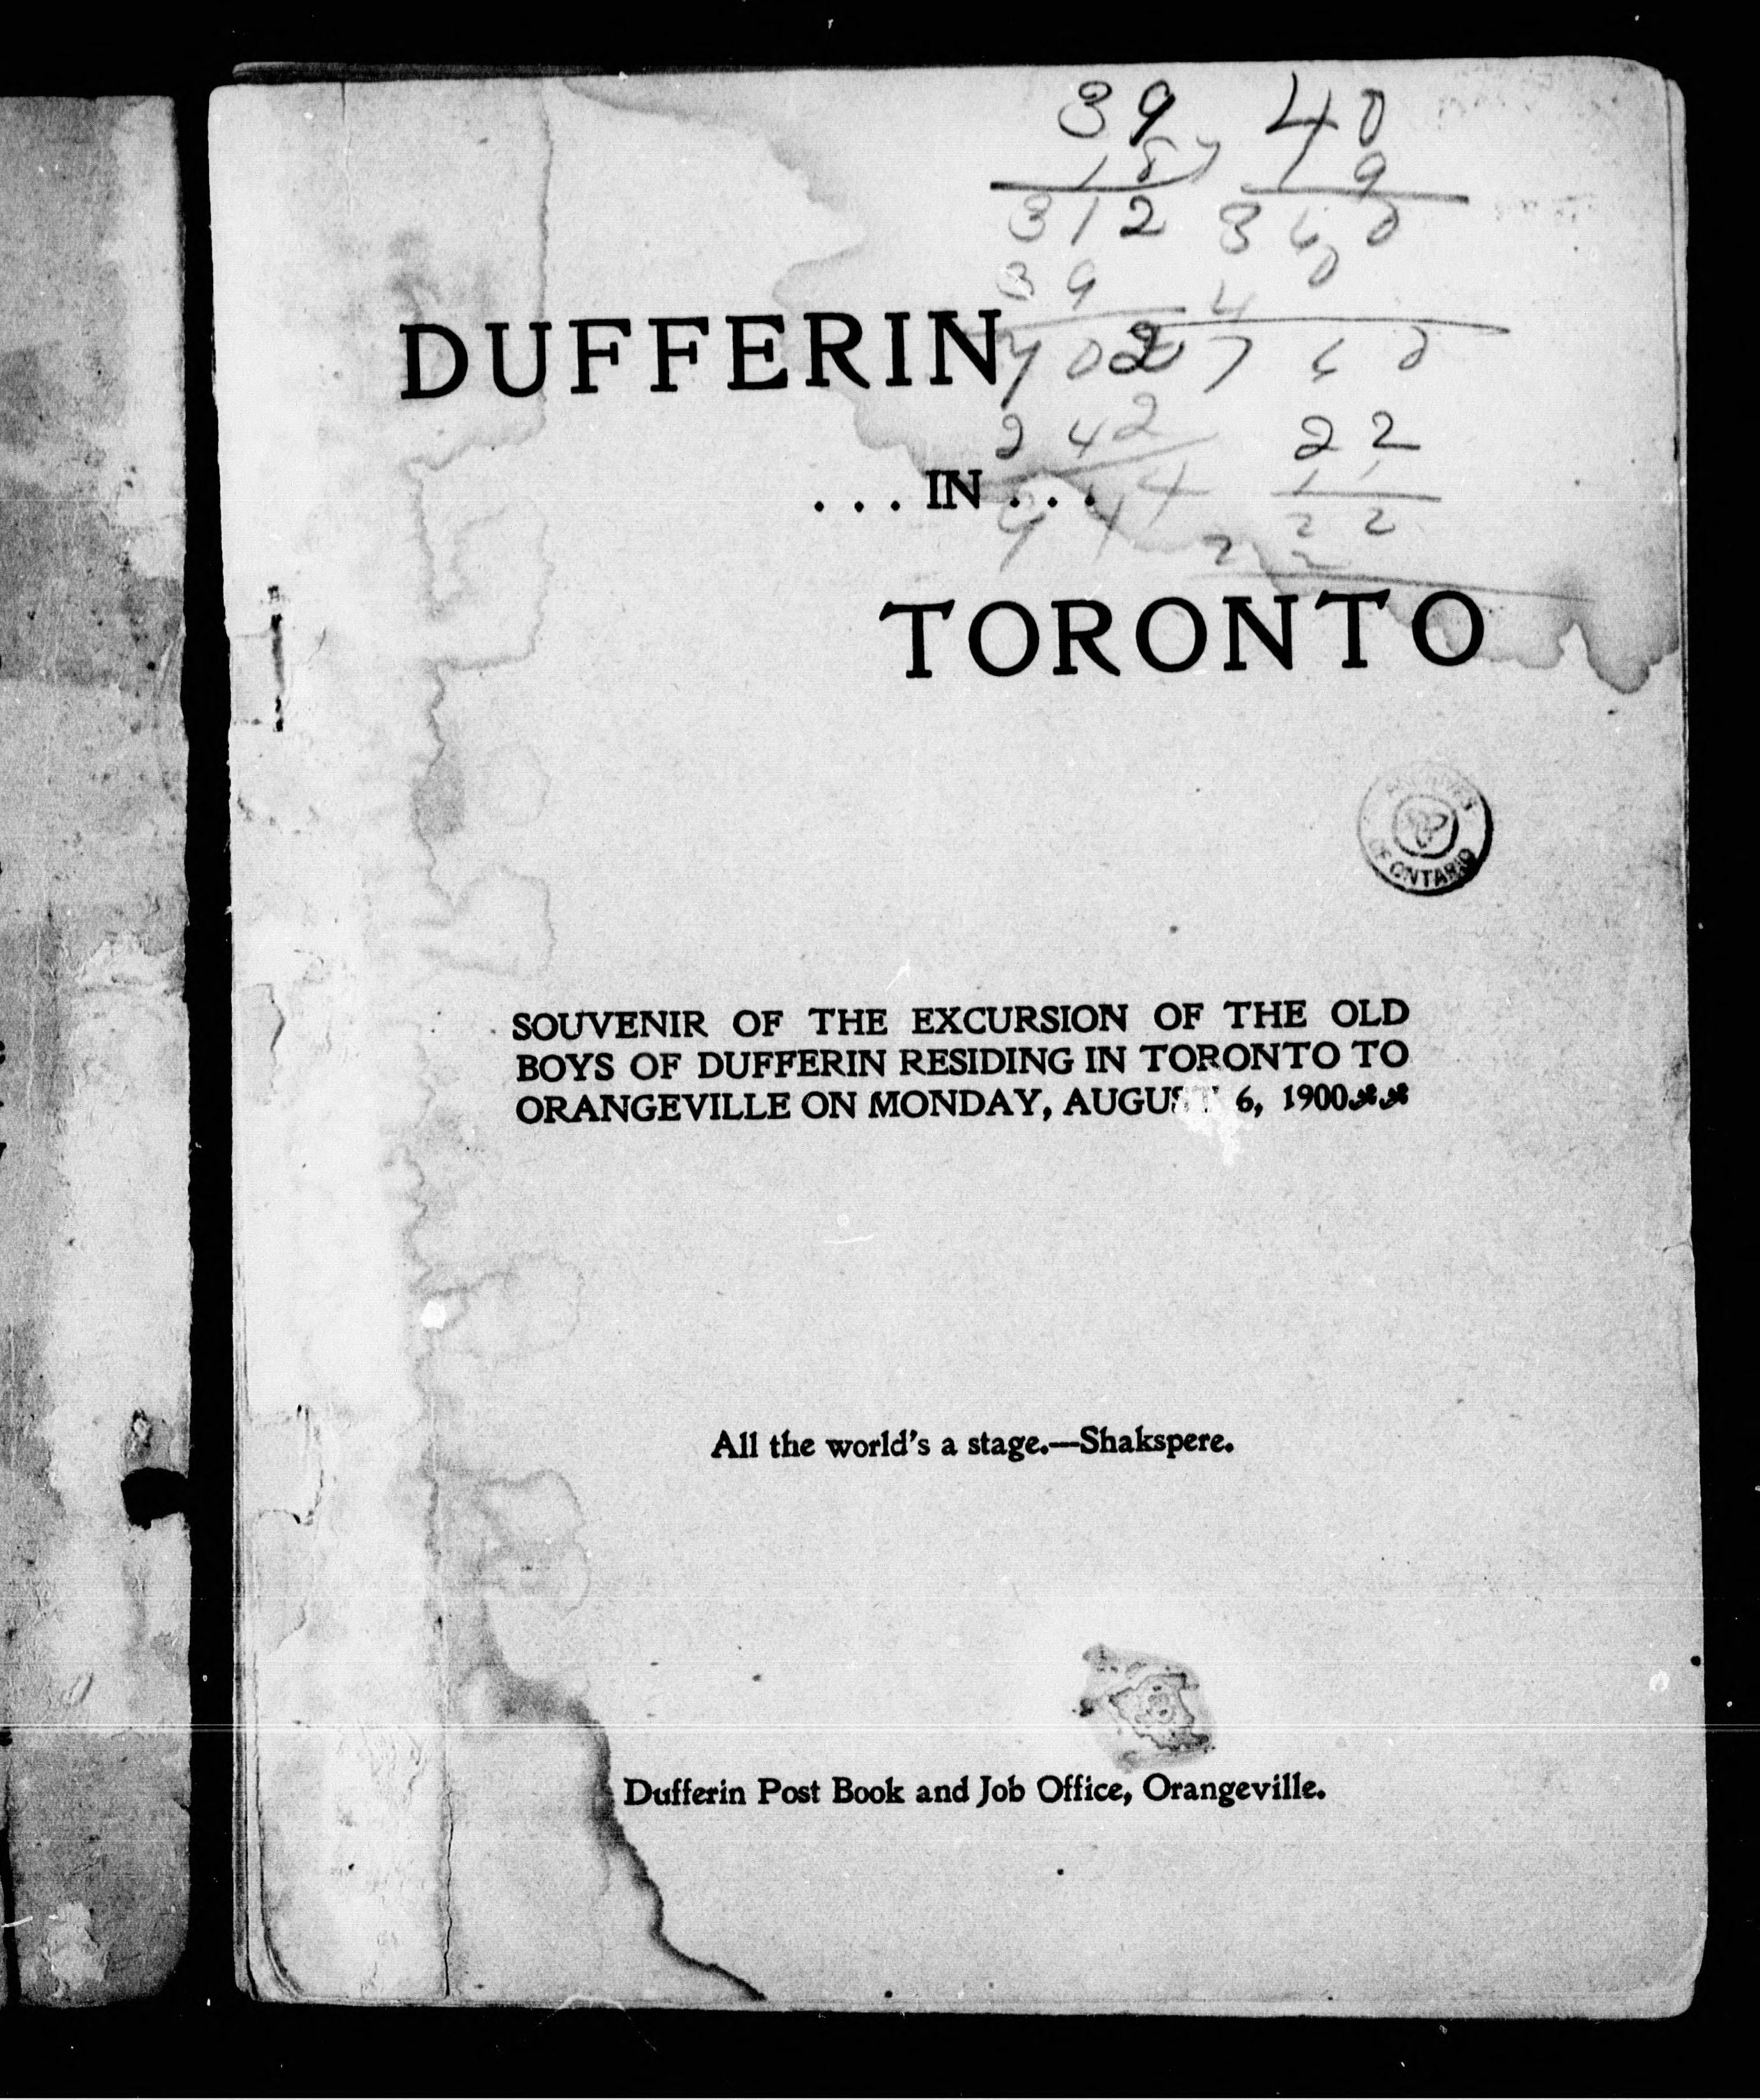 39 40
18 19
312 360
39 40
702 760
242 22
944 11
22
22
DUFFERIN
...IN...
TORONTO
ARCHIVES OF ONTARIO
SOUVENIR OF THE EXCURSION OF THE OLD
BOYS OF DUFFERIN RESIDING IN TORONTO TO
ORANGEVILLE ON MONDAY, AUGUST 6, 1900
All the world's a stage.—Shakspere.
Dufferin Post Book and Job Office, Orangeville.